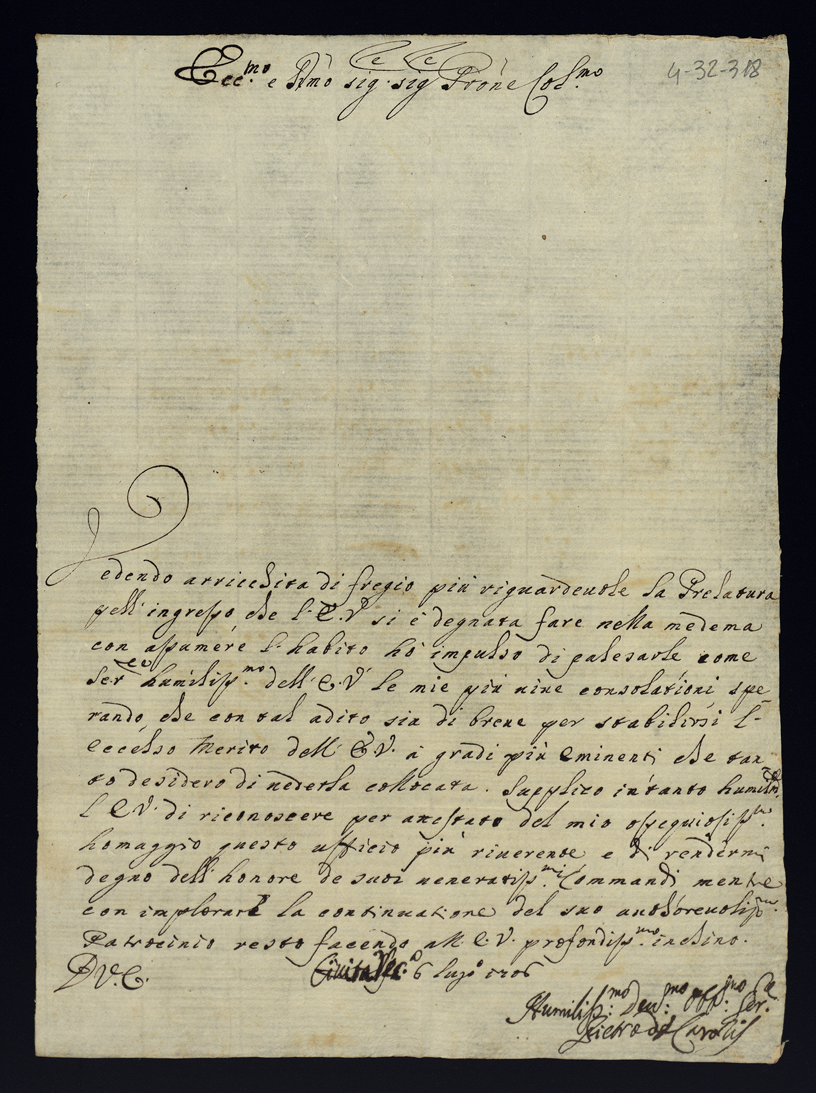 Ecc.mo e Rmo sig. sig Prone Col.mo
4-32-318
Vedendo arricchita di fregio più riguardeuole la Prelatura
nell'ingresso che l'E.V. si è degnata fare nella medema
con assumere l'habito hò impulso di palesarle come
Ser.re humiliss.mo dell'E.V. le mie più uiue consolationi spe
rando, che con tal adito sia di breue per stabilirsi l'
eccelso merito dell'E.V. a gradi più eminenti che tan
to desidero di uederla collocata. Supplico intanto humilm.te
l'E.V. di riconoscere per attestato del mio ossequiosiss.mo
homaggio questo ufficio più riuerente e di rendermi
degno dell'honore de suoi ueneratiss.mi Commandi mentre
con implorare la continuatione del suo authoreuoliss.mo
Patrocinio resto facendo all'E.V. profondiss.mo inchino.
D.V.E. Ciuita Vec.a 6 lug.o 1706
Humiliss.mo Deu.mo Obl.mo Ser.re
Pietro de Carolis